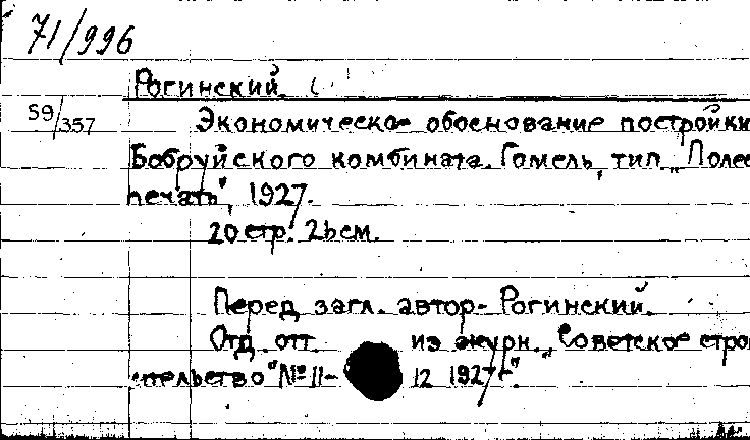 71/996
Рогинский.
59/357
Экономическое обоснование постройки
Бобруйского комбината. Гомель, тип. „Полес
печать", 1927.
20 стр. 26 см.
Перед загл. автор- Рогинский.
Отд. отт. из журн. „Советское строи
тельство" №11- 12 1927 г".